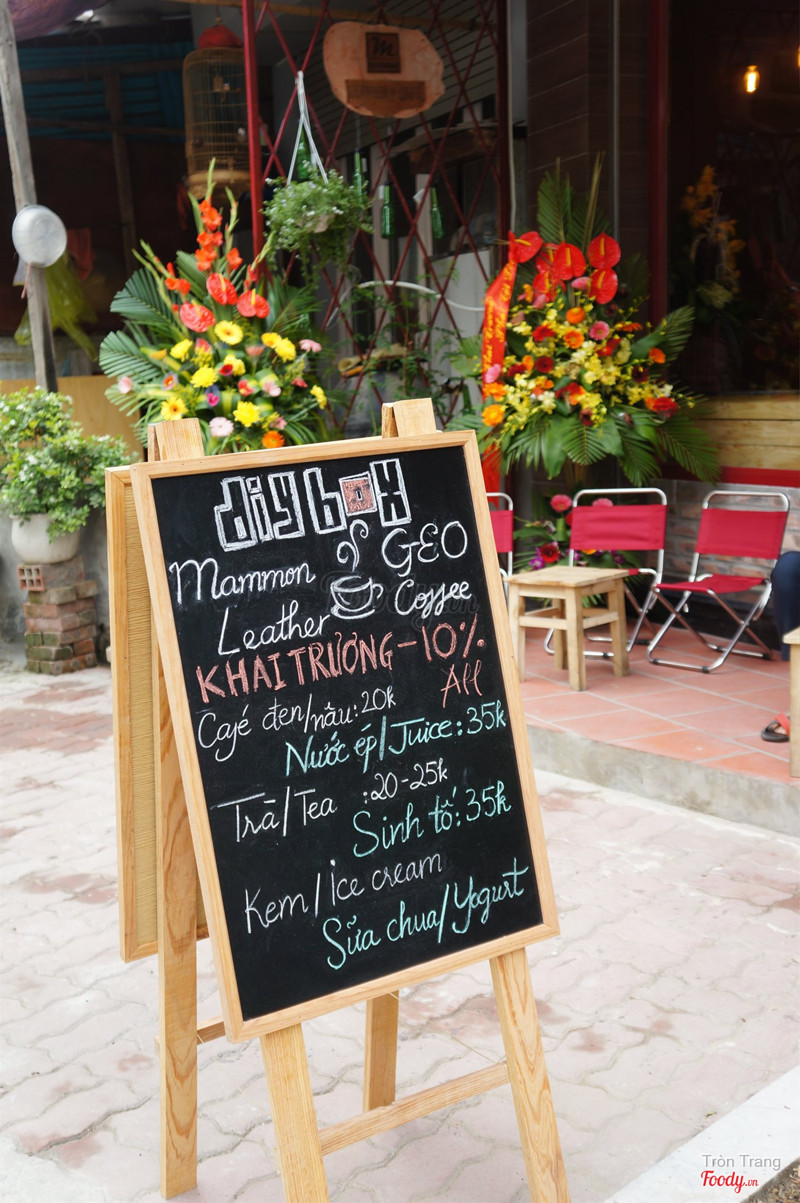 diy box
Mammon GEO
Leather Coffee
KHAI TRƯƠNG -10%
All
Café đen/nâu: 20k
Nước ép/Juice: 35k
Trà/Tea : 20-25k
Sinh tố: 35k
Kem/Ice cream
Sữa chua/Yogurt
Tròn Trang
Foody.vn